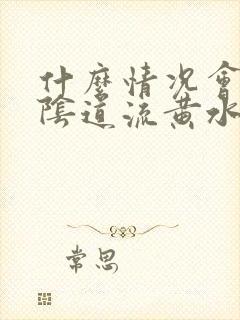 什麼情況會
陰道流黃水
常思